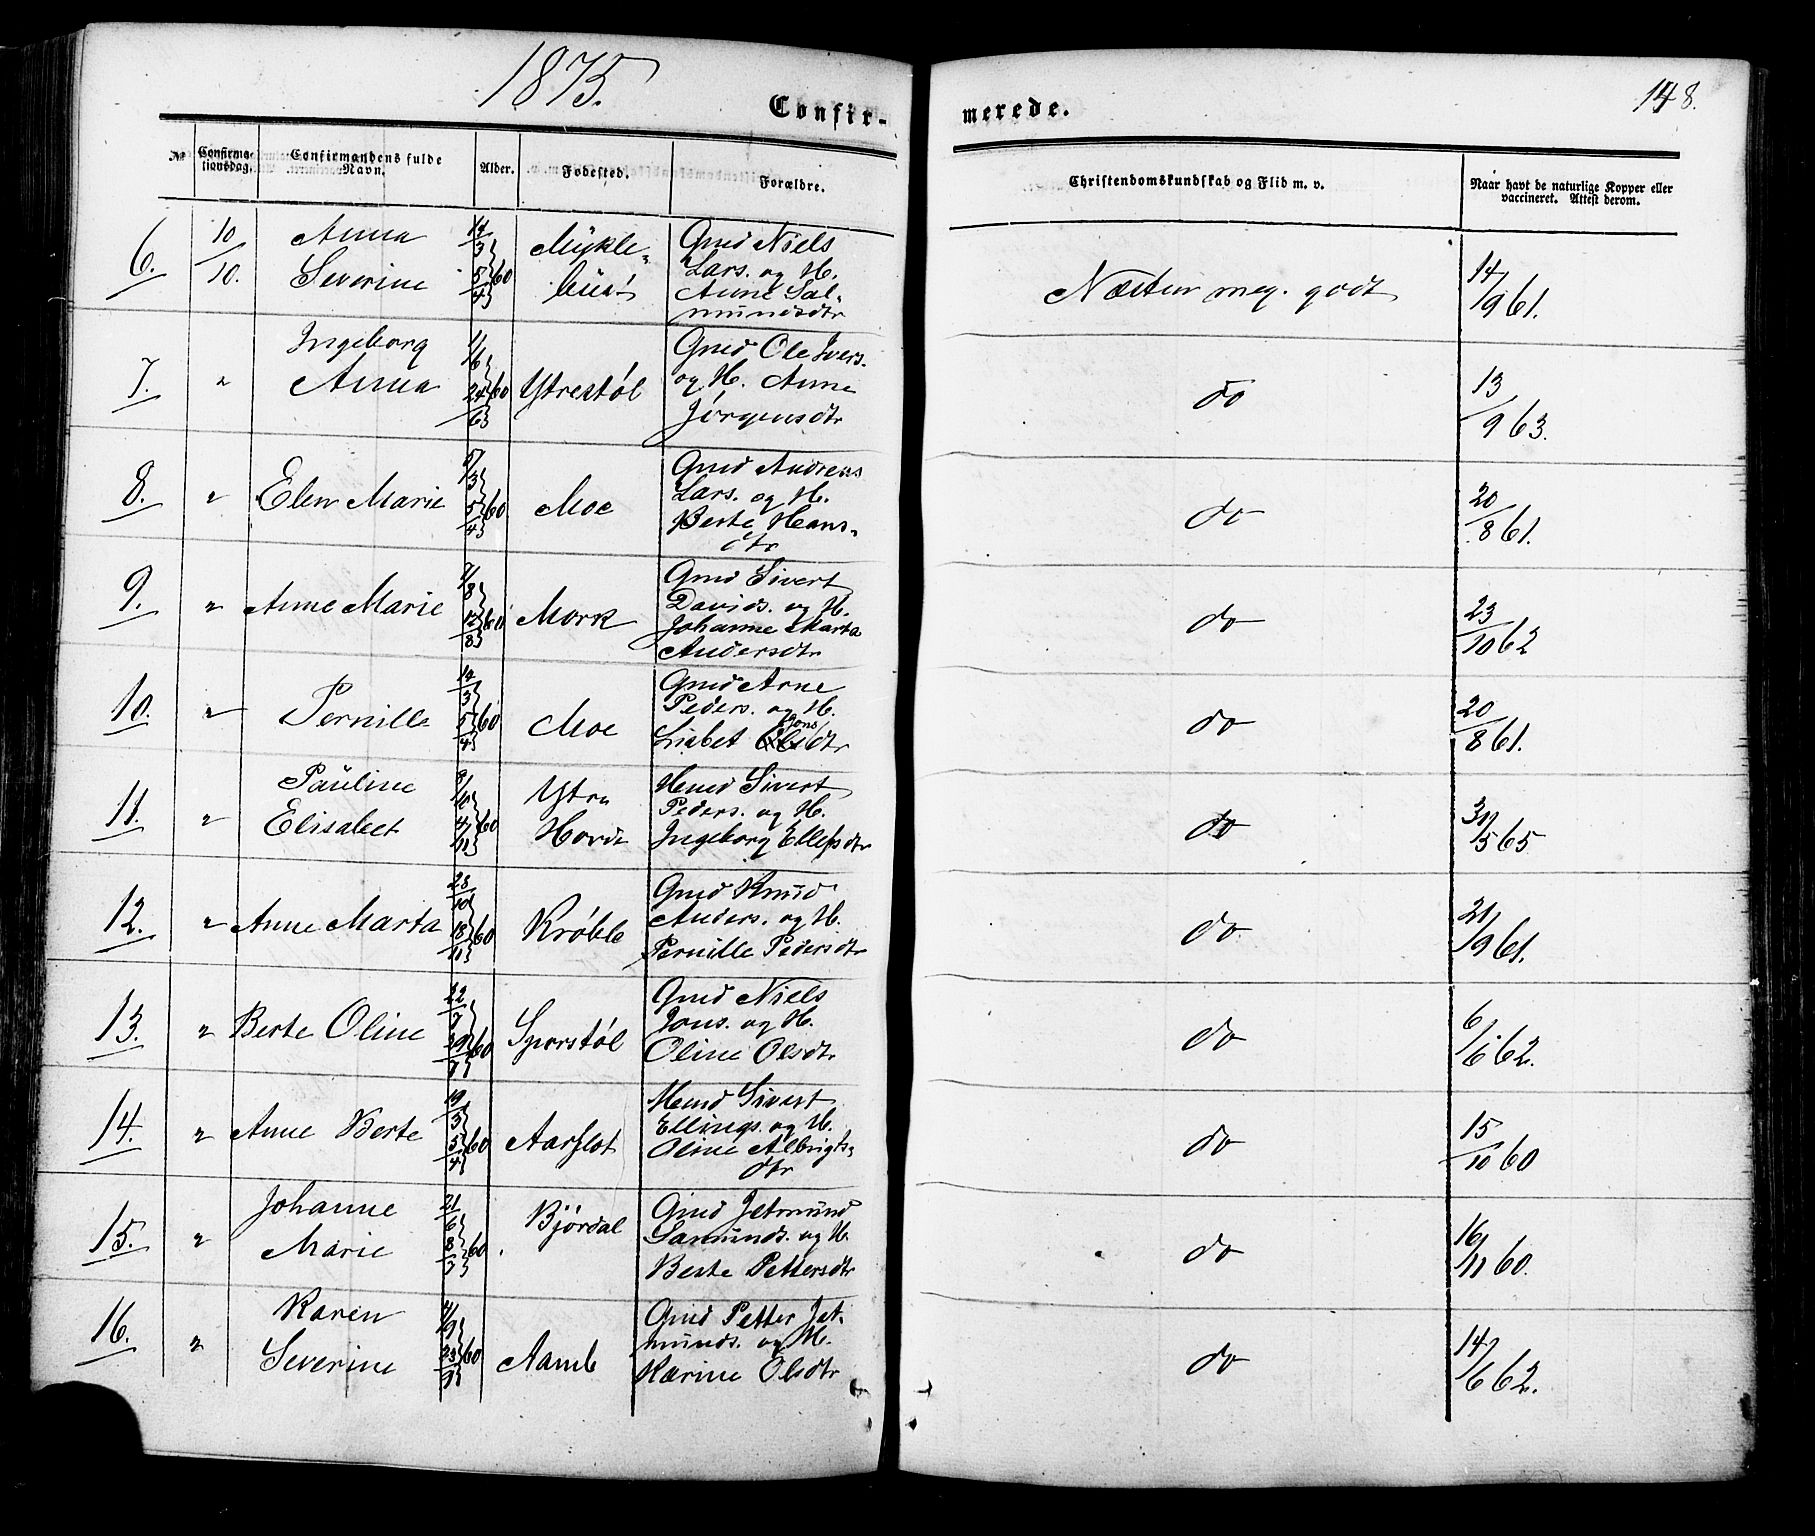 1875.
Confir-
merede.
148.
№
Confirma-
tionsdag.
Confirmandens fulde
Navn.
Alder.
Fødested.
Forældre.
Christendomskundskab og Flid m. v.
Naar havt de naturlige Kopper eller
vaccineret. Attest derom.
6. 10/10. Anna
Severine
14/3 5/4 60
Mykle-
bust
Gmd Niels
Lars. og H.
Anne Sal-
mundsdtr
Næsten meg. godt
14/9 61.
7. "
Ingeborg
Anna
1/6 24/6 60
Ytrestøl
Gmd Ole Ivers.
og H. Anne
Jørgensdtr
do
13/9 63.
8. " Elen Marie
5/3 5/4 60
Moe
Gmd Andreas
Lars. og H.
Berte Hans-
dtr
do
20/8 61.
9. " Anne Marie
7/8 12/8 60
Mork
Gmd Sivert
Davids. og H.
Johanne Marta
Andersdtr
do
23/10 62
10. " Pernille
14/3 5/4 60
Moe
Gmd Arne
Peders. og H.
Lisbet Jonsdtr
do
20/8 61.
11. "
Pauline
Elisabet
8/10 4/11 60
Ytre
Hovde
Hmd Sivert
Peders. og H.
Ingeborg Ellefsdtr
do
31/5 65
12. " Anne Marta
28/10 18/11 60
Krøble
Gmd Knud
Anders. og H.
Pernille Pedersdtr
do
21/9 61.
13. " Berte Oline
22/7 29/7 60
Sporstøl
Gmd Niels
Jons. og H.
Oline Olsdtr
do
6/6 62.
14. " Anne Berte
19/3 5/4 60
Aarflot
Hmd Sivert
Ellings. og H.
Oline Albrigts-
dtr
do
15/10 60
15. "
Johanne
Marie
21/6 8/7 60
Bjørdal
Gmd Jetmund
Samunds. og H.
Berte Pettersdtr
do
16/11 60.
16. "
Karen
Severine
4/9 23/9 60
Aamb
Gmd Petter Jet-
munds. og H.
Karine Olsdtr
do
14/6 62.